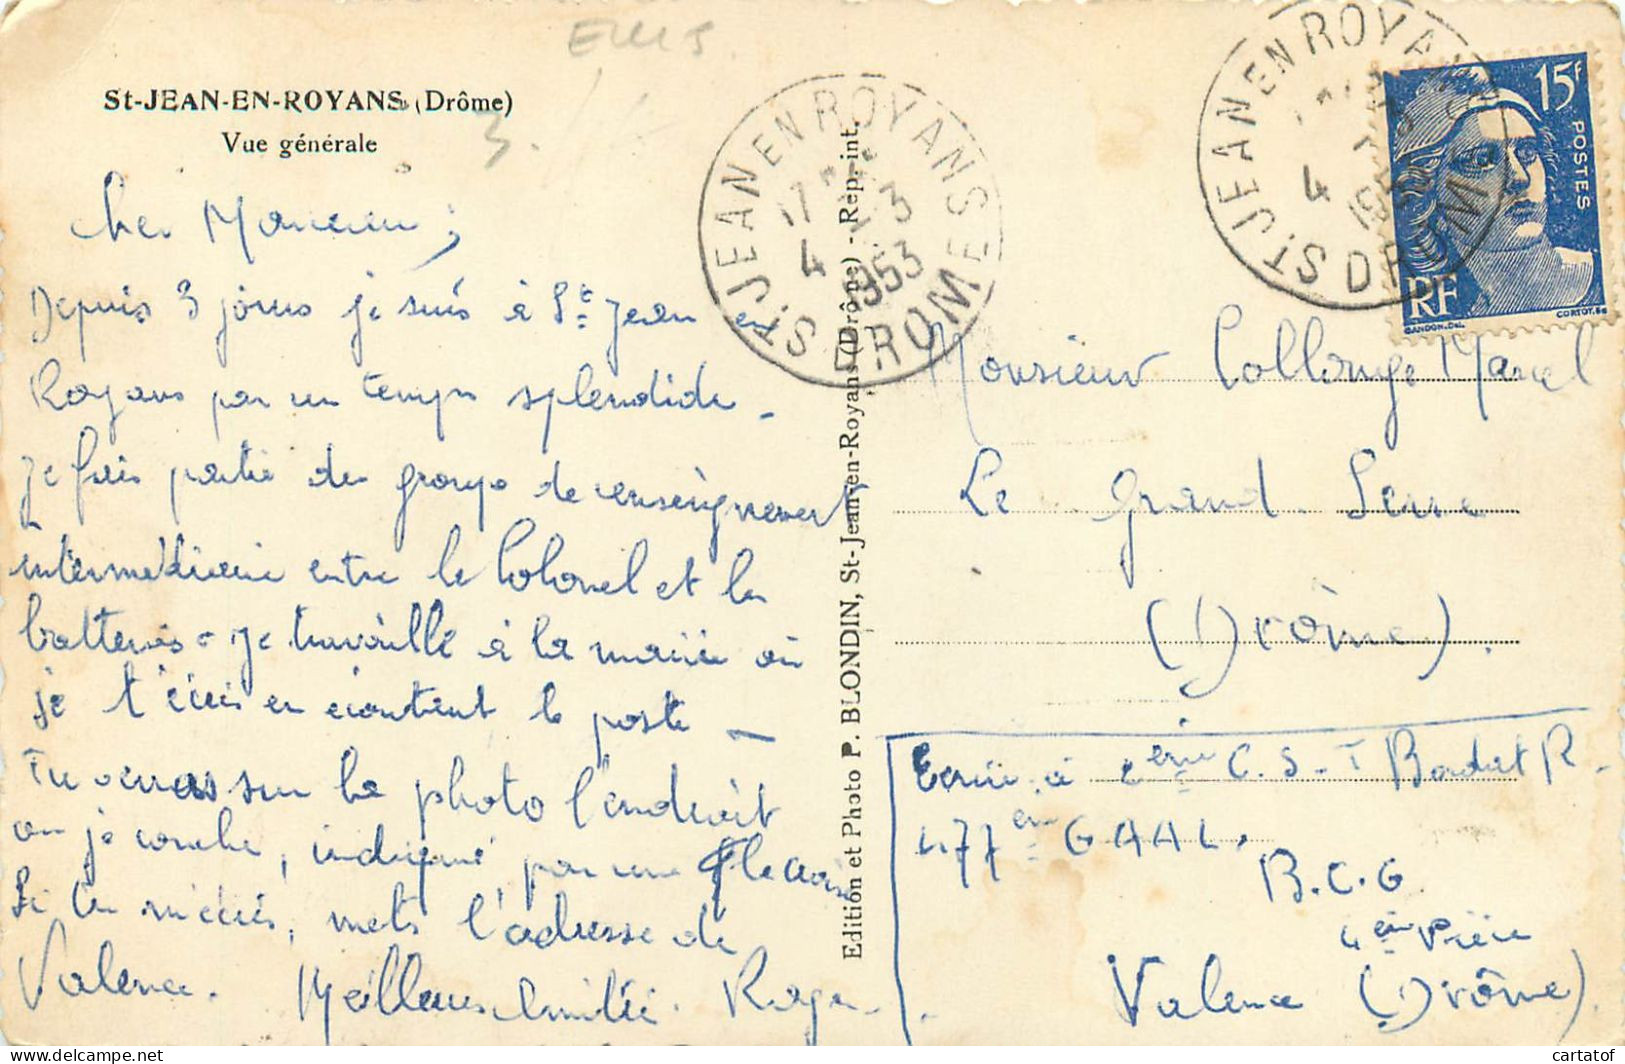 St-JEAN-EN-ROYANS (Drôme)
Vue générale
3.
Cher Marcel;
Depuis 3 jours je suis à St Jean en
Royans par un temps splendide -
Je fais partie du groupe de renseignement
intermédiaire entre le Colonel et la
batterie - Je travaille à la mairie où
je t'écris en écoutant le poste -
Tu verras sur la photo l'endroit
où je couche, indiqué par une
Si tu m'écris, mets l'adresse de
Valence. Meilleures Amitiés. Roger.
Edition et Photo P. BLONDIN, St-Jean-en-Royans (Drôme) - Rep. int.
ST. JEAN EN ROYANS
17 3
4
1953
DROME
ST. JEAN EN ROYANS
4
DROME
15F
POSTES
RF
GANDON.Del.
CORTOT.Sc
Monsieur Collonge Marcel
Le Grand Serre
(Drôme).
Ecrire à C.S.T R.
477 G A A L.
B.C.G
4 Pièce
Valence (Drôme).
cartatof